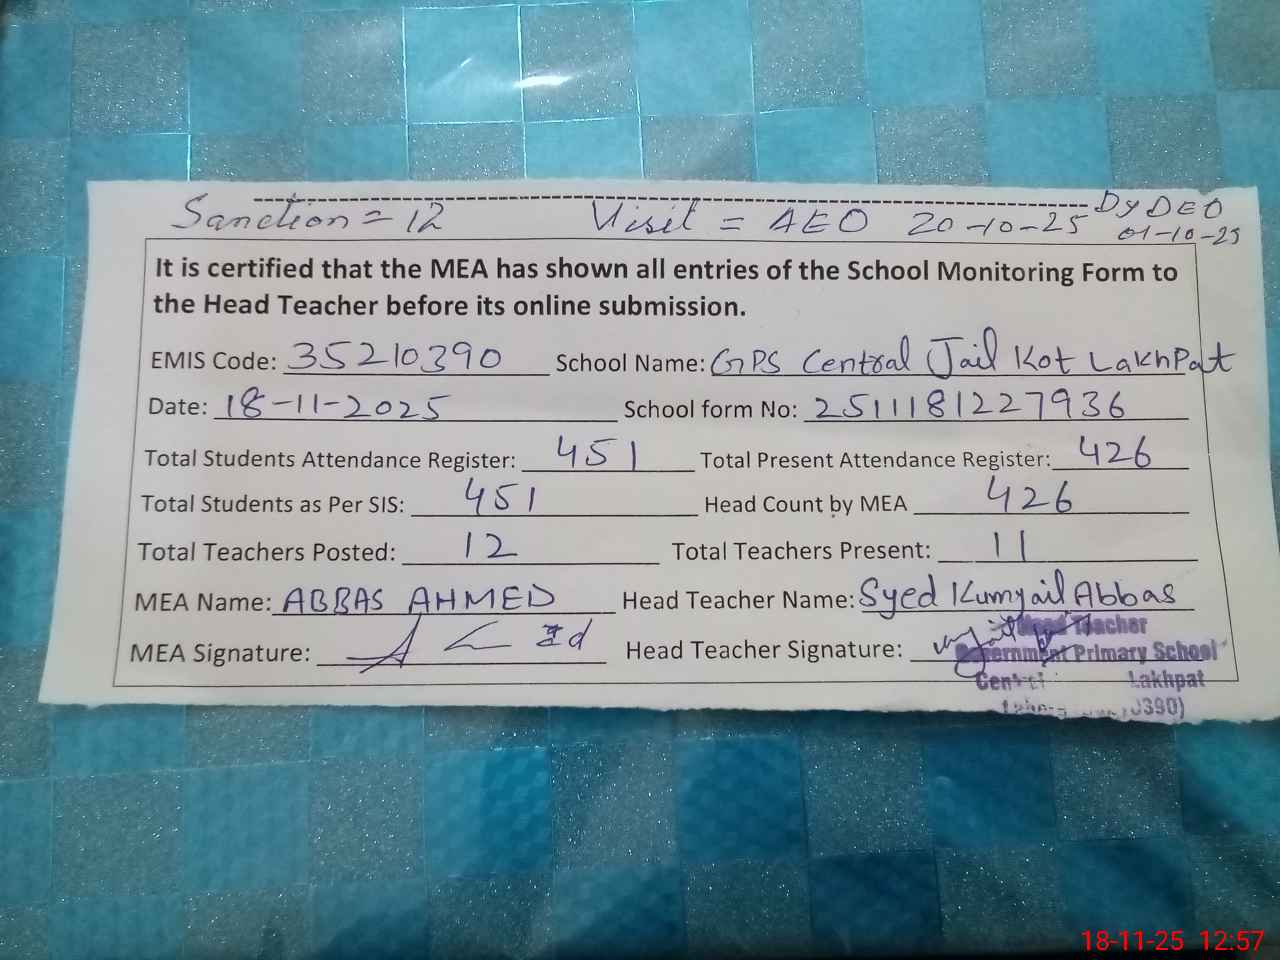 Sanction = 12 Visit = AEO 20-10-25 Dy DEO
01-10-25
It is certified that the MEA has shown all entries of the School Monitoring Form to
the Head Teacher before its online submission.
EMIS Code: 35210390 School Name: GPS Central Jail Kot LakhPat
Date: 18-11-2025 School form No: 251118122 7936
Total Students Attendance Register: 451 Total Present Attendance Register: 426
Total Students as Per SIS: 451 Head Count by MEA 426
Total Teachers Posted: 12 Total Teachers Present: 11
MEA Name: ABBAS AHMED Head Teacher Name: Syed Kumyail Abbas
MEA Signature: Head Teacher Signature:
Head Teacher
Government Primary School
Central Lakhpat
0390)
18-11-25 12:57